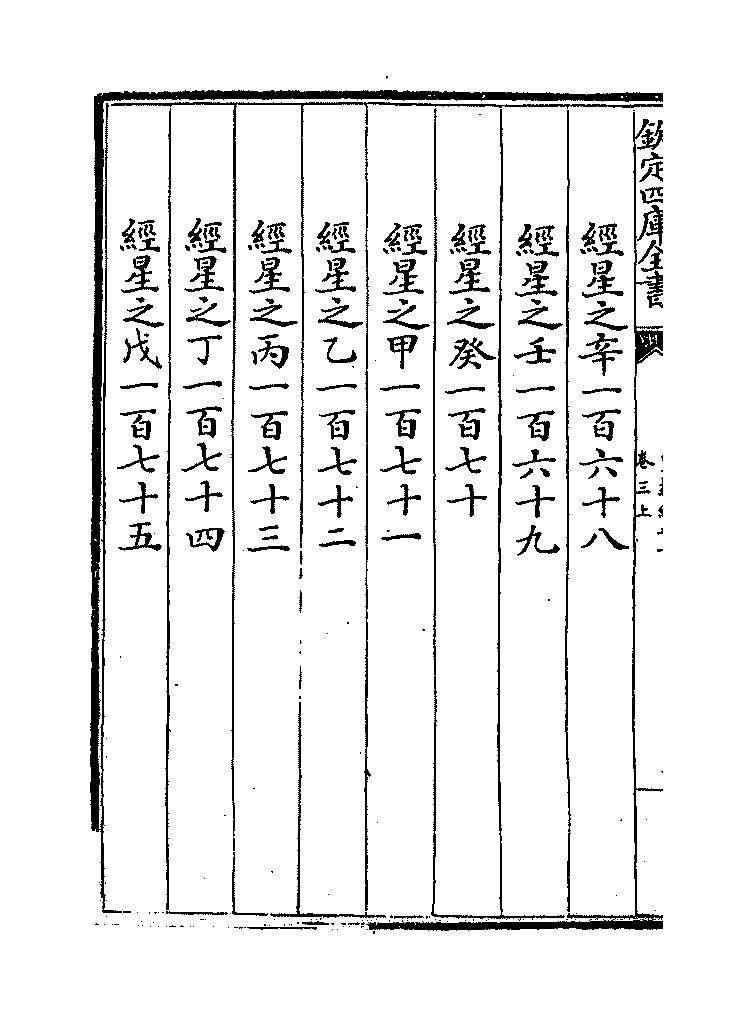 欽定四庫全書
卷三上
經星之辛一百六十八
經星之壬一百六十九
經星之癸一百七十
經星之甲一百七十一
經星之乙一百七十二
經星之丙一百七十三
經星之丁一百七十四
經星之戊一百七十五